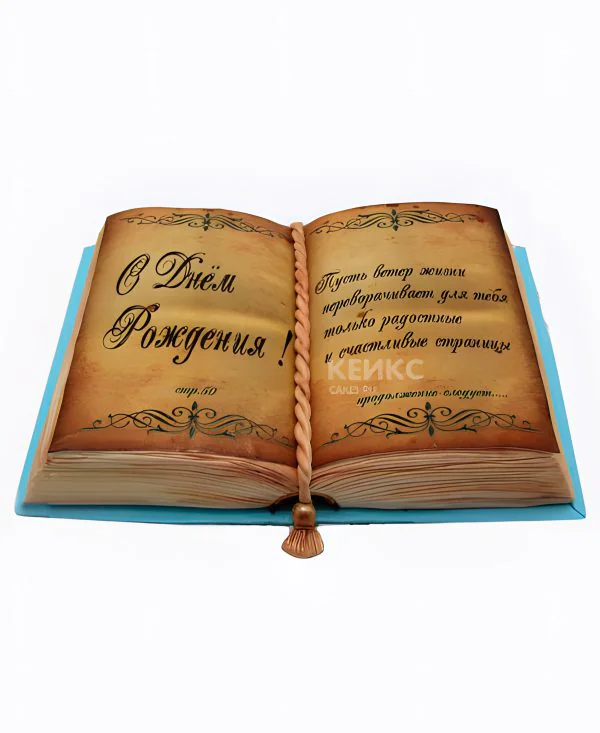 С Днём
Рождения !
стр.60
Пусть ветер жизни
переворачивает для тебя
только радостные
и счастливые страницы
продолжение следует.....
КЕИКС